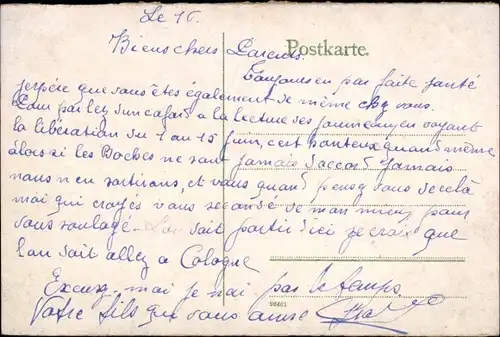 Le 16.
Bien chers Parents. Postkarte.
Toujours en par faite santé
jespére que vous êtes également de même chez vous.
Vous parlez d'un cafard a la lecture des journeaux en voyant
la libération du 1 au 15 Juin, c'est honteux quand même
alors si les Boches ne sont jamais d'accord Jamais
nous n'en sortirons, et vous quand pensez vous de celà
moi qui croyés vous secondé de mon mieux pour
vous soulagé. Lon soit partir d'ici je crois que
l'on doit allez a Cologne
Excusez-moi je n'ai pas le temps
Votre fils qui vous aime